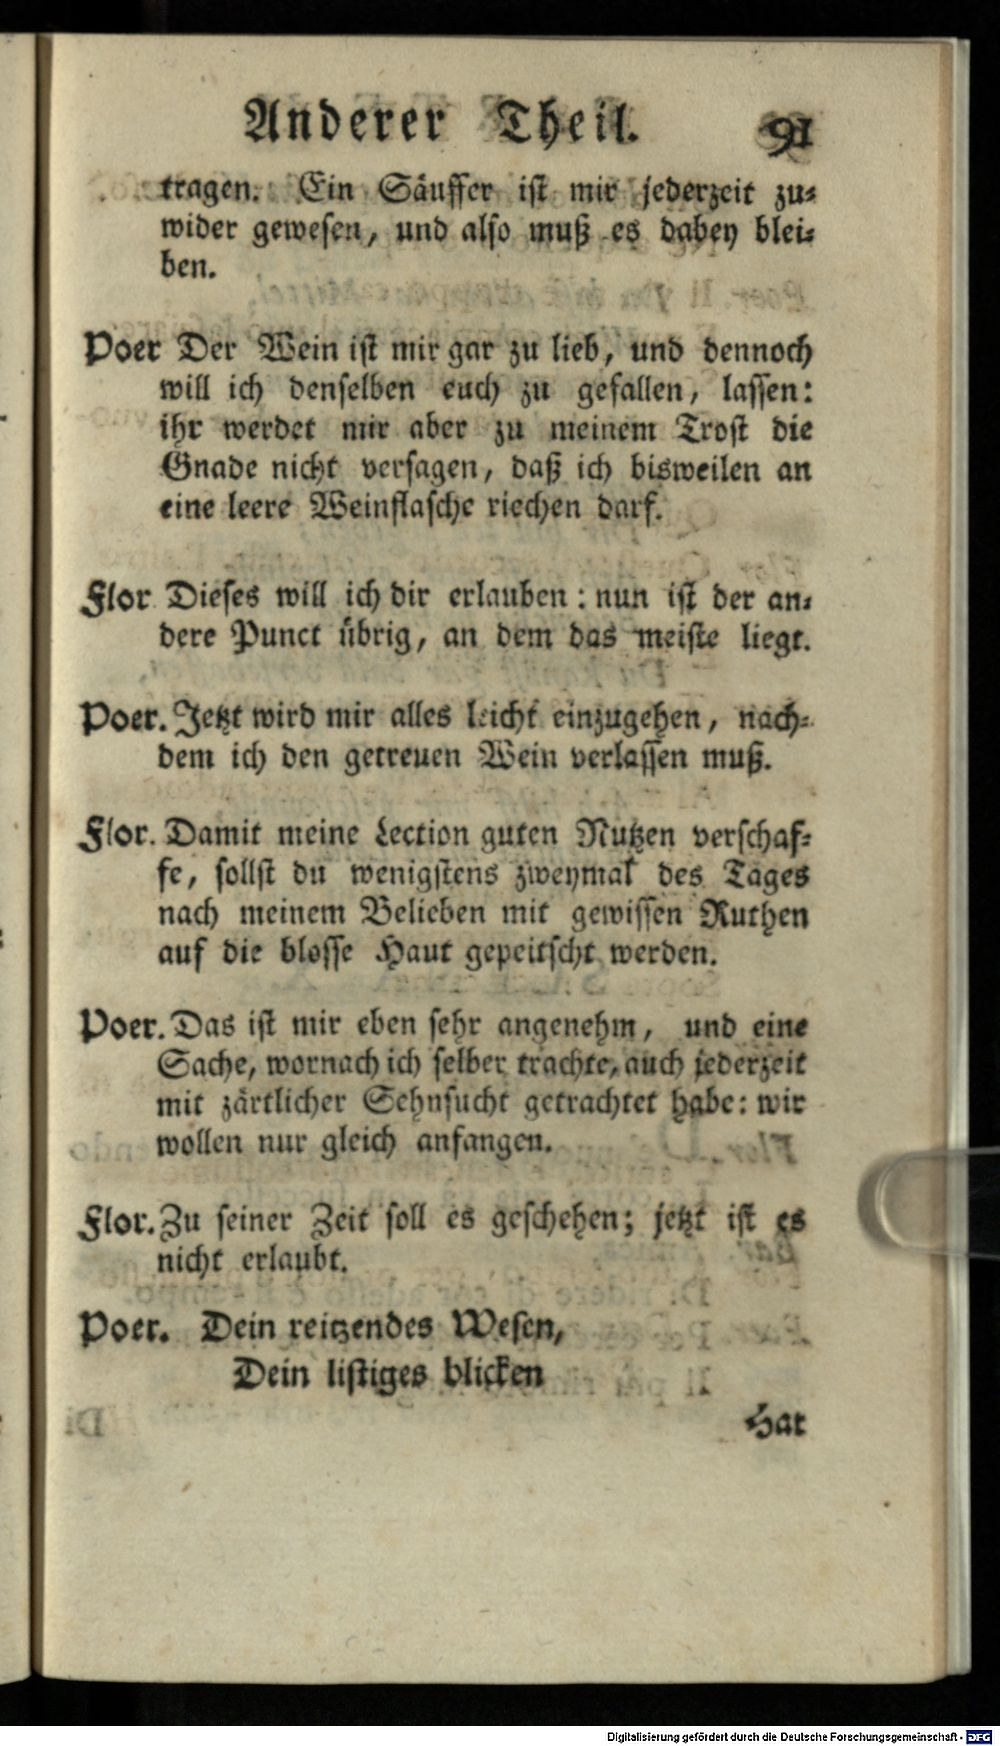 Anderer Theil. 91
tragen. Ein Säuffer ist mir jederzeit zu-
wider gewesen, und also muß es dabey blei-
ben.
Poer Der Wein ist mir gar zu lieb, und dennoch
will ich denselben euch zu gefallen, lassen:
ihr werdet mir aber zu meinem Trost die
Gnade nicht versagen, daß ich bisweilen an
eine leere Weinflasche riechen darf.
Flor Dieses will ich dir erlauben: nun ist der an-
dere Punct übrig, an dem das meiste liegt.
Poer. Jetzt wird mir alles leicht einzugehen, nach-
dem ich den getreuen Wein verlassen muß.
Flor. Damit meine Lection guten Nutzen verschaf-
fe, sollst du wenigstens zweymal des Tages
nach meinem Belieben mit gewissen Ruthen
auf die blosse Haut gepeitscht werden.
Poer. Das ist mir eben sehr angenehm, und eine
Sache, wornach ich selber trachte, auch jederzeit
mit zärtlicher Sehnsucht getrachtet habe: wir
wollen nur gleich anfangen.
Flor. Zu seiner Zeit soll es geschehen; jetzt ist es
nicht erlaubt.
Poer. Dein reitzendes Wesen,
Dein listiges blicken
Hat
Digitalisierung gefördert durch die Deutsche Forschungsgemeinschaft - DFG